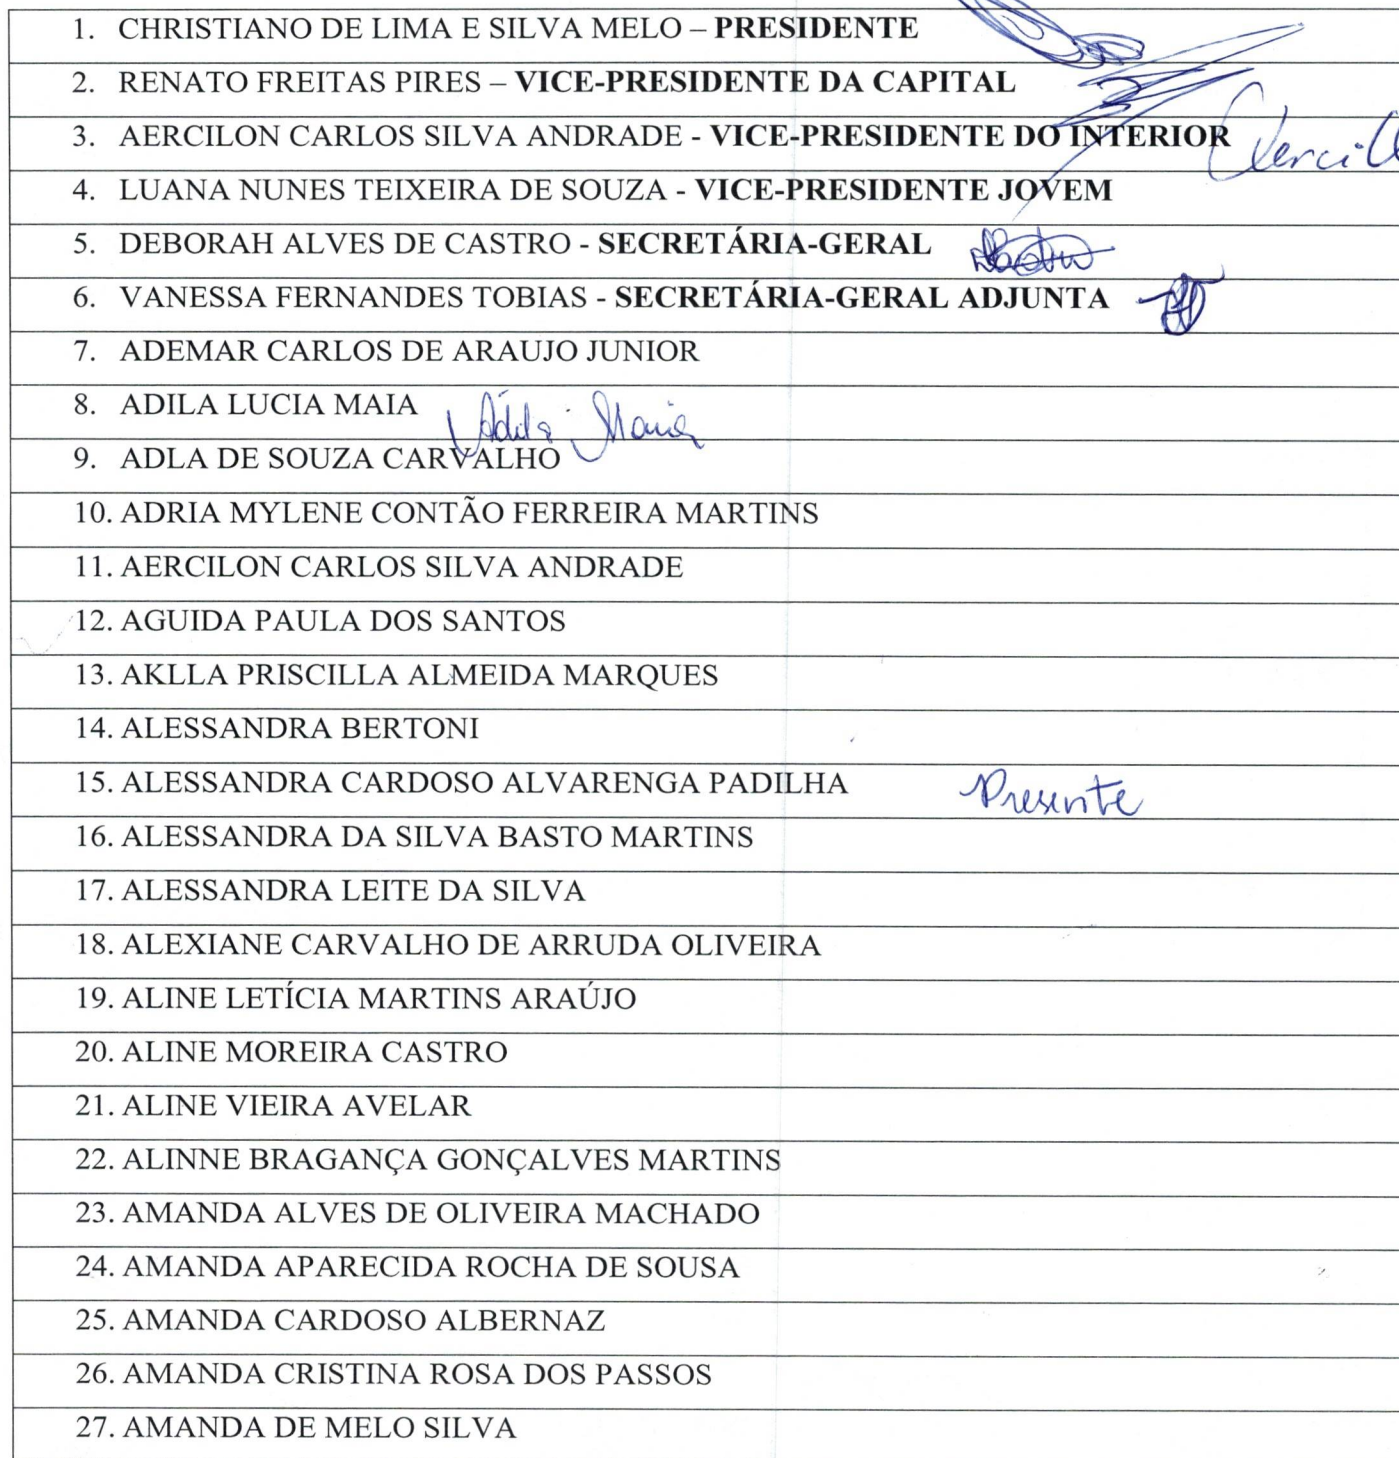 1. CHRISTIANO DE LIMA E SILVA MELO – PRESIDENTE
2. RENATO FREITAS PIRES – VICE-PRESIDENTE DA CAPITAL
3. AERCILON CARLOS SILVA ANDRADE - VICE-PRESIDENTE DO INTERIOR
4. LUANA NUNES TEIXEIRA DE SOUZA - VICE-PRESIDENTE JOVEM
5. DEBORAH ALVES DE CASTRO - SECRETÁRIA-GERAL
6. VANESSA FERNANDES TOBIAS - SECRETÁRIA-GERAL ADJUNTA
7. ADEMAR CARLOS DE ARAUJO JUNIOR
8. ADILA LUCIA MAIA
9. ADLA DE SOUZA CARVALHO
10. ADRIA MYLENE CONTÃO FERREIRA MARTINS
11. AERCILON CARLOS SILVA ANDRADE
12. AGUIDA PAULA DOS SANTOS
13. AKLLA PRISCILLA ALMEIDA MARQUES
14. ALESSANDRA BERTONI
15. ALESSANDRA CARDOSO ALVARENGA PADILHA Presente
16. ALESSANDRA DA SILVA BASTO MARTINS
17. ALESSANDRA LEITE DA SILVA
18. ALEXIANE CARVALHO DE ARRUDA OLIVEIRA
19. ALINE LETÍCIA MARTINS ARAÚJO
20. ALINE MOREIRA CASTRO
21. ALINE VIEIRA AVELAR
22. ALINNE BRAGANÇA GONÇALVES MARTINS
23. AMANDA ALVES DE OLIVEIRA MACHADO
24. AMANDA APARECIDA ROCHA DE SOUSA
25. AMANDA CARDOSO ALBERNAZ
26. AMANDA CRISTINA ROSA DOS PASSOS
27. AMANDA DE MELO SILVA